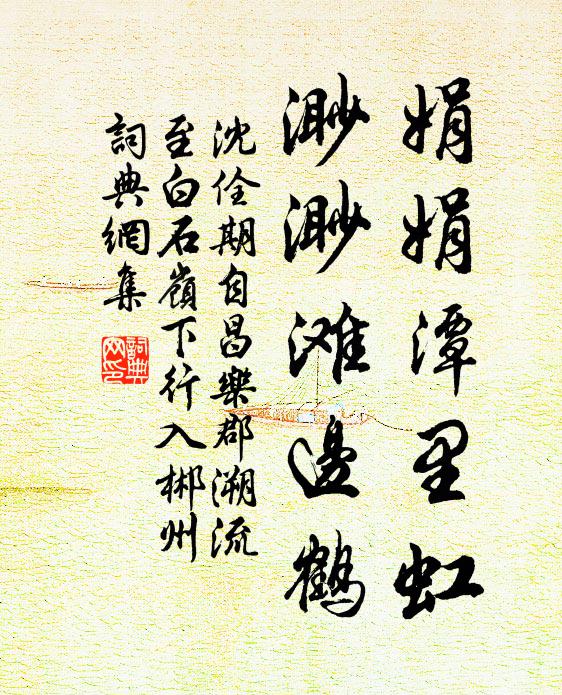 娟娟潭里虹
渺渺滩邊鶴
沈佺期自昌樂郡溯流
至白石嶺下行入郴州
詞典網集
詞典网印